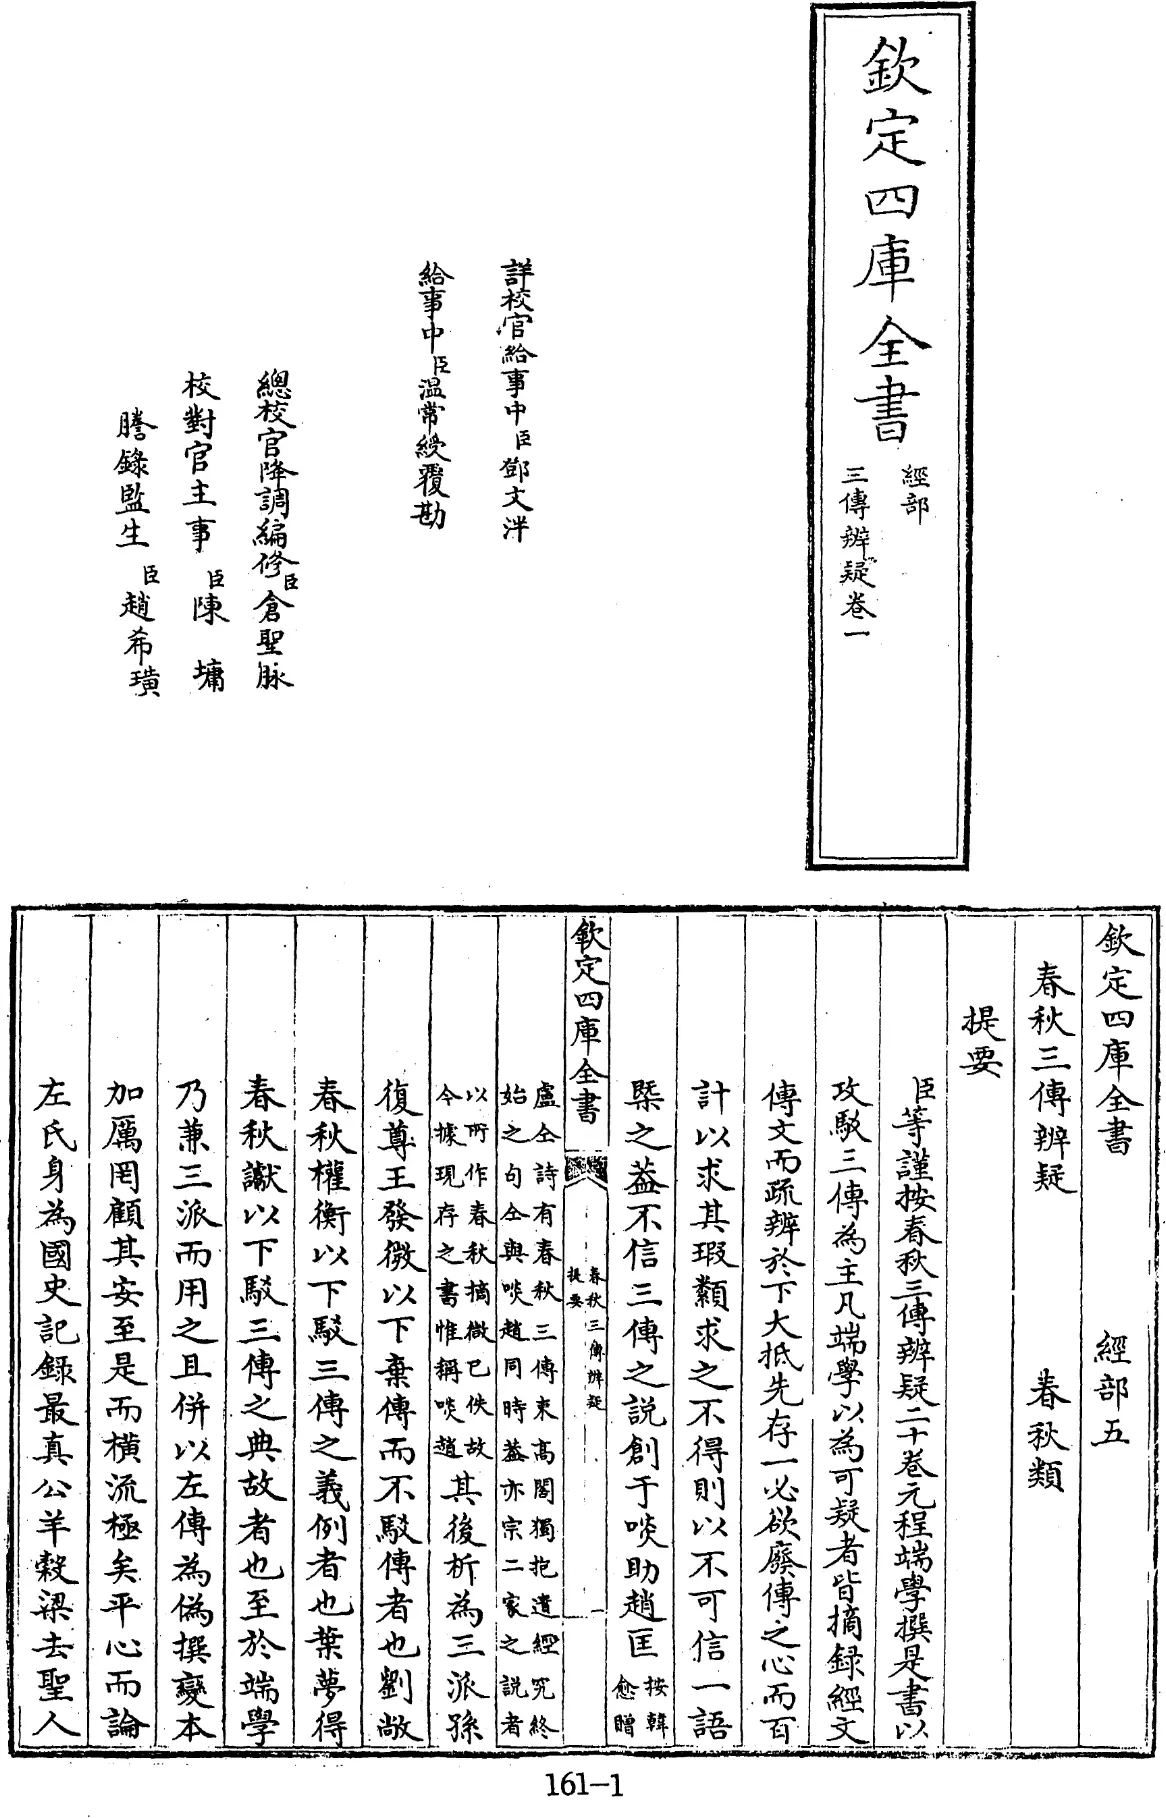 欽定四庫全書
經部
三傳辨疑卷一
詳校官給事中臣鄧文泮
給事中臣温常綬覆勘
總校官降調編修臣倉聖脉
校對官主事臣陳墉
謄錄監生臣趙希璜
欽定四庫全書 經部五
春秋三傳辨疑 春秋類
提要
臣等謹按春秋三傳辨疑二十卷元程端學撰是書以
攻駁三傳為主凡端學以為可疑者皆摘録經文
傳文而疏辨於下大抵先存一必欲廢傳之心而百
計以求其瑕纇求之不得則以不可信一語
槩之葢不信三傳之說創于啖助趙匡
按韓
愈贈
欽定四庫全書
春秋三傳辨疑
提要
一
盧仝詩有春秋三傳束高閣獨抱遺經究終
始之句仝與啖趙同時葢亦宗二家之說者
以所作春秋摘微已佚故
今據現存之書惟稱啖趙
其後析為三派孫
復尊王發微以下棄傳而不駁傳者也劉敞
春秋權衡以下駁三傳之義例者也葉夢得
春秋讞以下駁三傳之典故者也至於端學
乃兼三派而用之且併以左傳為偽撰變本
加厲罔顧其安至是而橫流極矣平心而論
左氏身為國史記録最真公羊穀梁去聖人
161-1